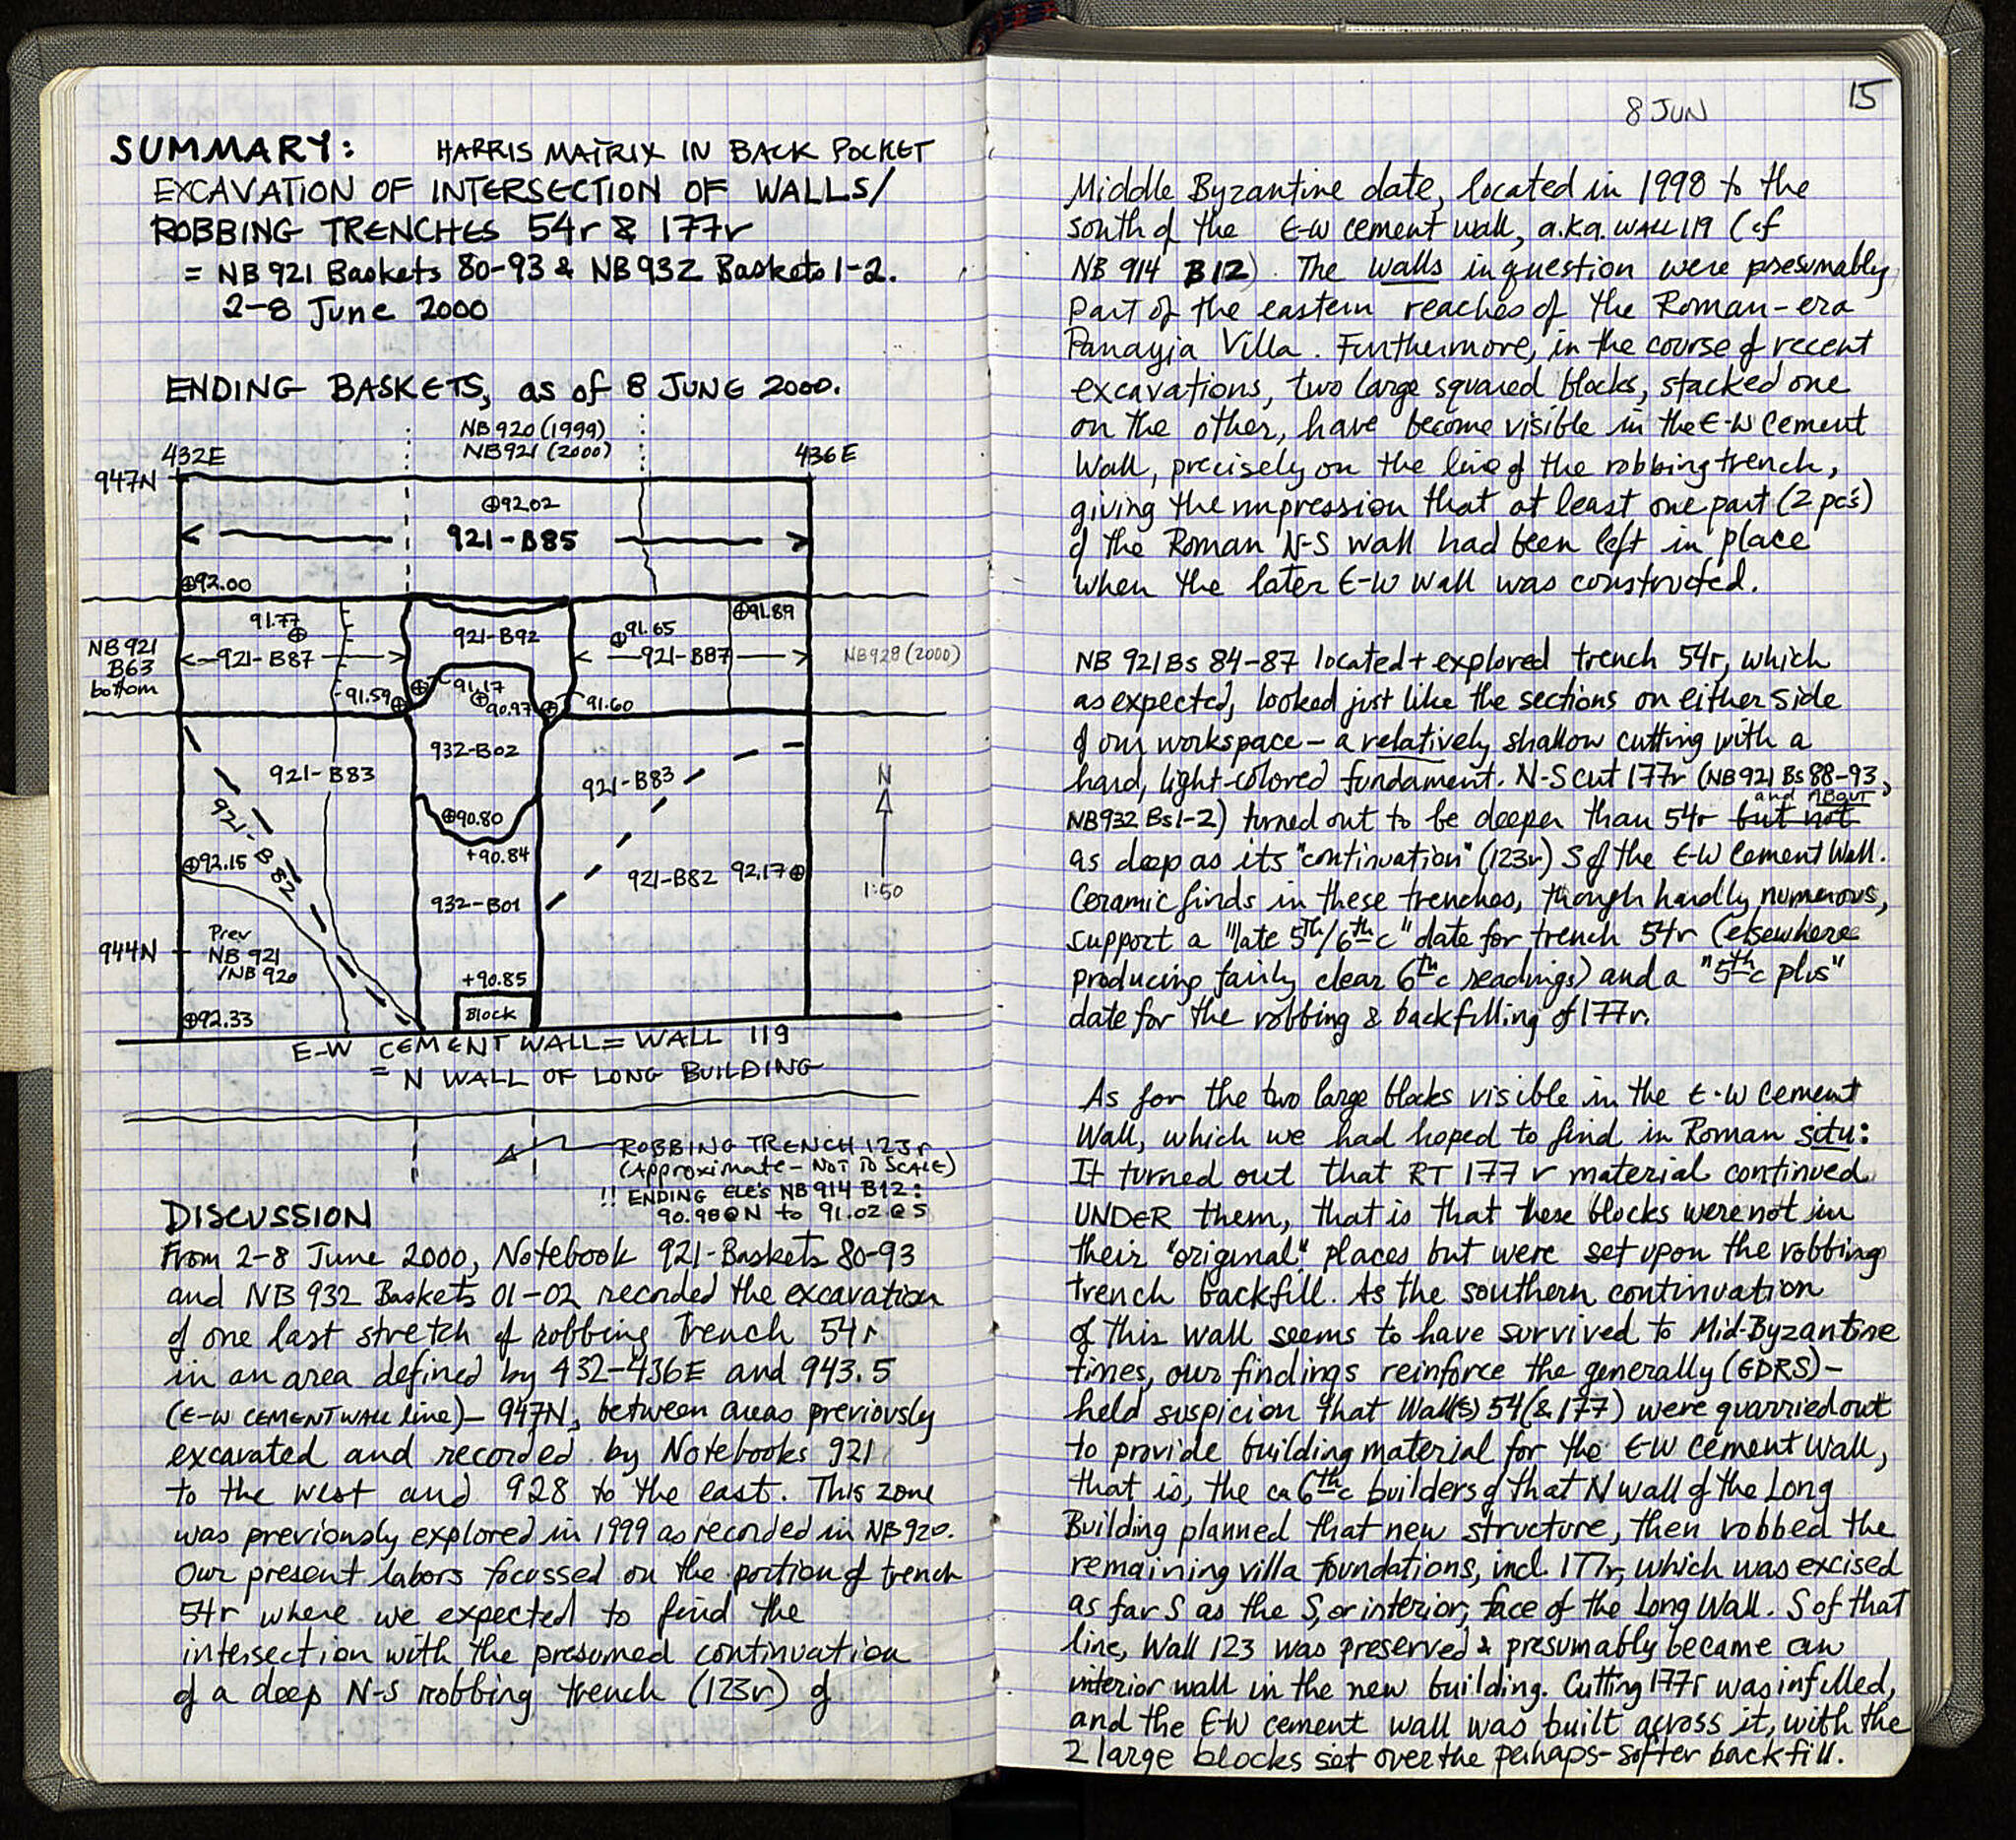 SUMMARY: HARRIS MATRIX IN BACK POCKET
EXCAVATION OF INTERSECTION OF WALLS/
ROBBING TRENCHES 54r & 177r
= NB 921 Baskets 80-93 & NB 932 Baskets 1-2.
2-8 June 2000
ENDING BASKETS, as of 8 JUNE 2000.
NB 920 (1999)
432E NB 921 (2000) 436E
947N
⊕92.02
921-B85
⊕92.00
91.77 ⊕91.89
921-B92 ⊕91.65
NB 921 921-B87 921-B87 NB 928 (2000)
B63
bottom
91.59 91.17 90.97 91.60
932-B02
921-B83 921-B83 N
921-B82
⊕90.80
+90.84
⊕92.15 921-B82 92.17⊕ 1:50
932-B01
944N Prev
NB 921
/NB 920
+90.85
⊕92.33 Block
E-W CEMENT WALL = WALL 119
= N WALL OF LONG BUILDING
ROBBING TRENCH 123r
(Approximate - NOT TO SCALE)
!! ENDING ELE's NB 914 B12:
90.98@N to 91.02@S
DISCUSSION
From 2-8 June 2000, Notebook 921-Baskets 80-93
and NB 932 Baskets 01-02 recorded the excavation
of one last stretch of robbing trench 54r
in an area defined by 432-436E and 943.5
(E-W CEMENT WALL line)- 947N, between areas previously
excavated and recorded by Notebooks 921
to the west and 928 to the east. This zone
was previously explored in 1999 as recorded in NB 920.
Our present labors focussed on the portion of trench
54r where we expected to find the
intersection with the presumed continuation
of a deep N-S robbing trench (123r) of
15
8 JUN
Middle Byzantine date, located in 1998 to the
south of the E-W cement wall, a.k.a. WALL 119 (cf
NB 914 B12). The walls in question were presumably
part of the eastern reaches of the Roman-era
Panayia Villa. Furthermore, in the course of recent
excavations, two large squared blocks, stacked one
on the other, have become visible in the E-W Cement
Wall, precisely on the line of the robbing trench,
giving the impression that at least one part (2 pc's)
of the Roman N-S wall had been left in place
when the later E-W wall was constructed.
NB 921 Bs 84-87 located + explored trench 54r, which
as expected, looked just like the sections on either side
of our workspace - a relatively shallow cutting with a
hard, light-colored fundament. N-S cut 177r (NB 921 Bs 88-93,
NB 932 Bs 1-2) turned out to be deeper than 54r but not and ABOUT
as deep as its "continuation" (123r) S of the E-W Cement Wall.
Ceramic finds in these trenches, though hardly numerous,
support a "late 5th/6th c" date for trench 54r (elsewhere
producing fairly clear 6th c readings) and a "5th c plus"
date for the robbing & backfilling of 177r.
As for the two large blocks visible in the E-W Cement
Wall, which we had hoped to find in Roman situ:
It turned out that RT 177r material continued
UNDER them, that is that these blocks were not in
their "original" places but were set upon the robbing
trench backfill. As the southern continuation
of this wall seems to have survived to Mid-Byzantine
times, our findings reinforce the generally (GDRS)-
held suspicion that Wall(s) 54 (& 177) were quarried out
to provide building material for the E-W Cement Wall,
that is, the ca 6th c builders of that N wall of the Long
Building planned that new structure, then robbed the
remaining villa foundations, incl. 177r, which was excised
as far S as the S, or interior, face of the Long Wall. S of that
line, Wall 123 was preserved & presumably became an
interior wall in the new building. Cutting 177r was infilled,
and the E-W cement wall was built across it, with the
2 large blocks set over the perhaps-softer backfill.